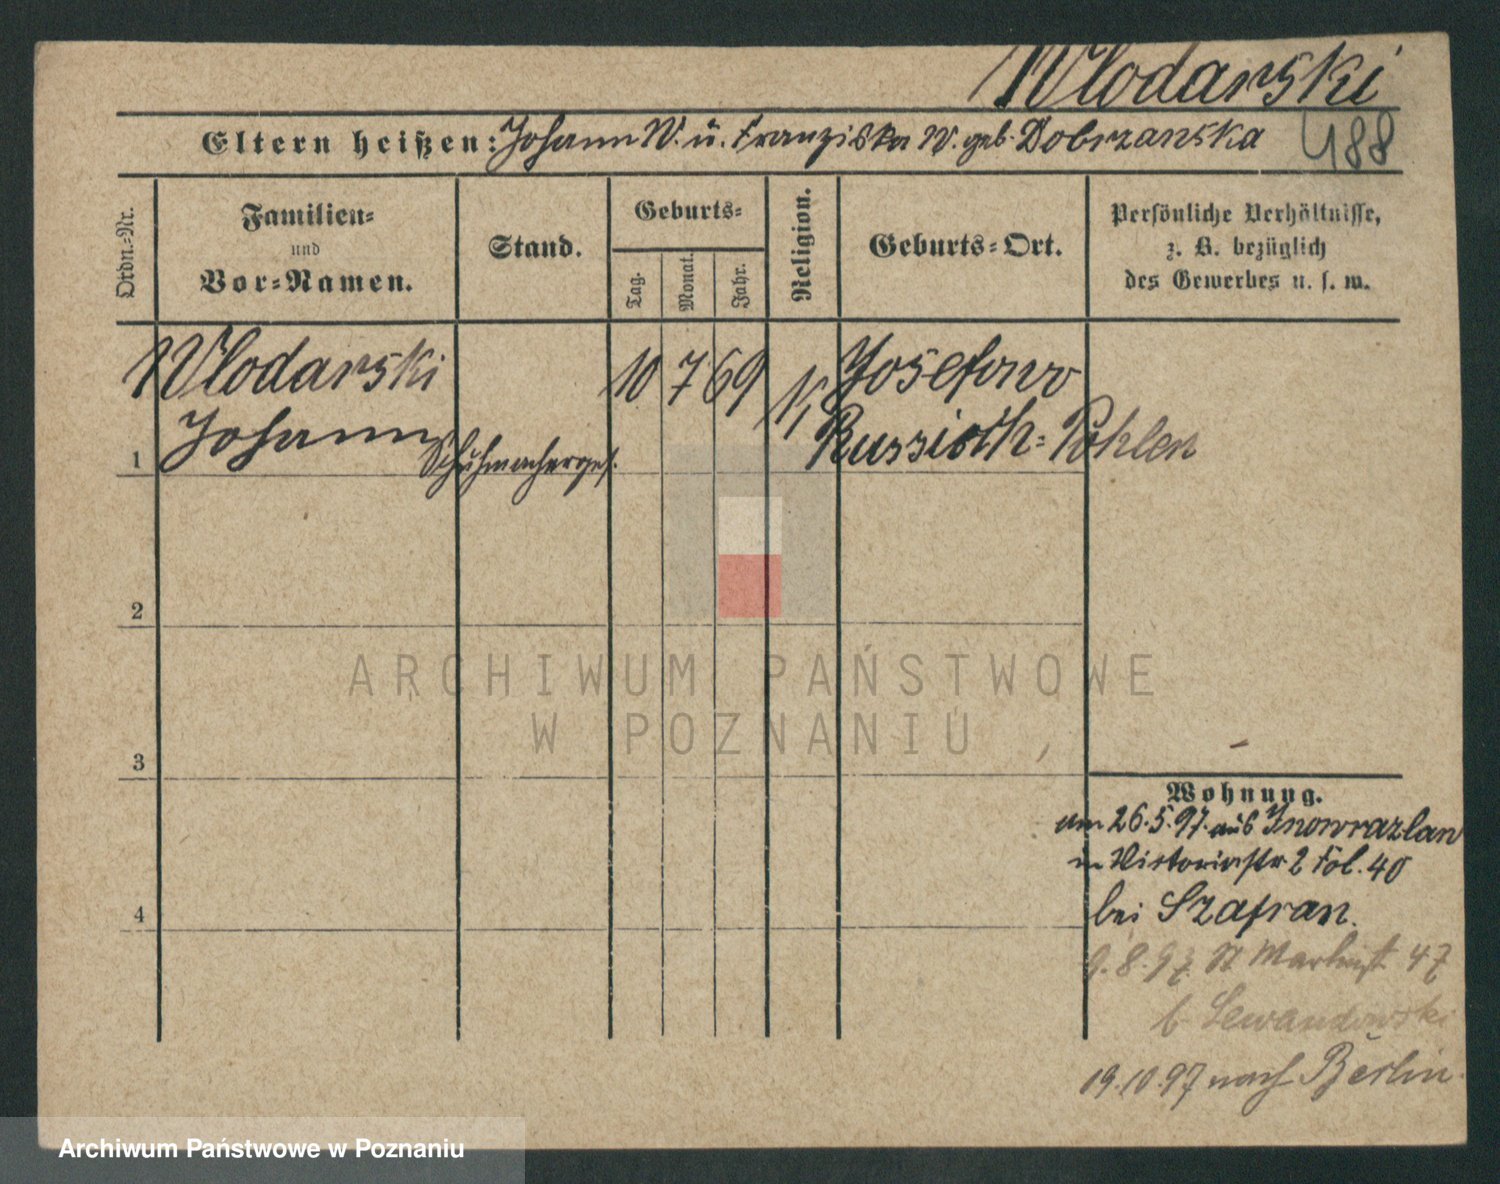 Wlodarski
Eltern heißen: Johann W. u. Franziska W. geb. Dobrzanska 488
Ordn.-Nr.
Familien-
und
Vor-Namen.
Stand.
Geburts-
Tag.
Monat.
Jahr.
Religion.
Geburts-Ort.
Persönliche Verhältnisse,
z. B. bezüglich
des Gewerbes u. s. w.
Wlodarski 10 7 69 Josefowo
1 Johann Schuhmacherges. Russisch-Pohlen
2
3
4
Wohnung.
am 26.5.97. aus Inowrazlaw
in Victoriastr 2 Fol. 40
bei Szafran.
9.8.97. St Martinst 47
b Lewandowski
19.10.97 nach Berlin.
ARCHIWUM PAŃSTWOWE
W POZNANIU
Archiwum Państwowe w Poznaniu